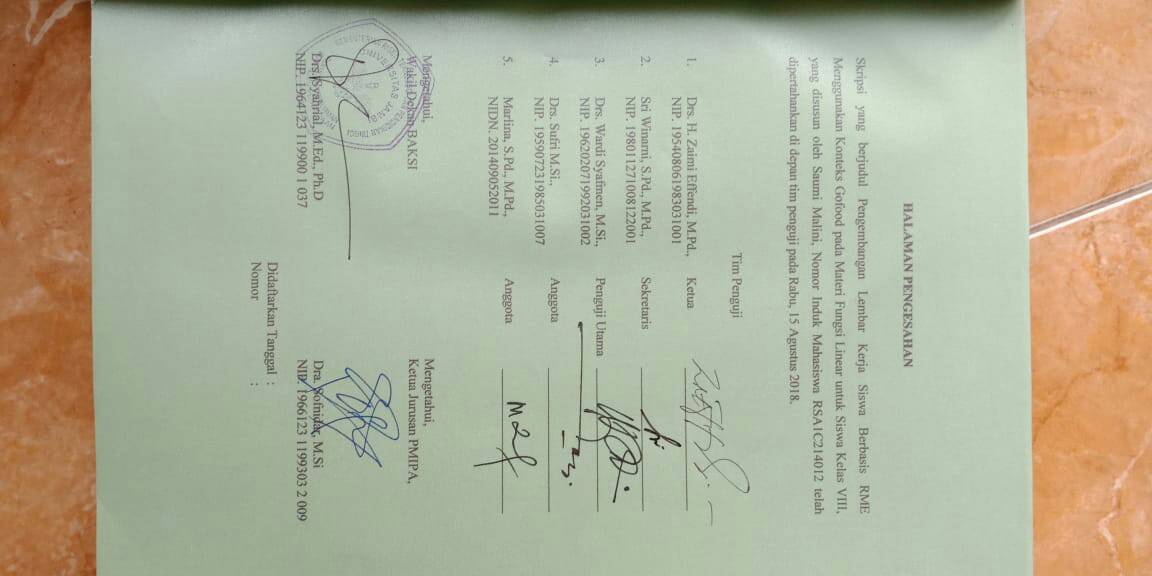 HALAMAN PENGESAHAN
Skripsi yang berjudul Pengembangan Lembar Kerja Siswa Berbasis RME
Menggunakan Konteks Gofood pada Materi Fungsi Linear untuk Siswa Kelas VIII,
yang disusun oleh Saumi Malini, Nomor Induk Mahasiswa RSA1C214012 telah
dipertahankan di depan tim penguji pada Rabu, 15 Agustus 2018.
Tim Penguji
1. Drs. H. Zaimi Effendi, M.Pd., Ketua
NIP. 195408061983031001
2. Sri Winarni, S.Pd., M.Pd., Sekretaris
NIP. 198011271008122001
3. Drs. Wardi Syafmen, M.Si., Penguji Utama
NIP. 196202071992031002
4. Drs. Sufri M.Si., Anggota
NIP. 195907231985031007
5. Marlina, S.Pd., M.Pd., Anggota
NIDN. 201409052011
Mengetahui, Mengetahui,
Wakil Dekan BAKSI Ketua Jurusan PMIPA,
UNIVERSITAS JAMBI
Drs. Syahrial, M.Ed., Ph.D Dra. Sofnidar, M.Si
NIP. 1964123 119900 1 037 NIP. 1966123 1199303 2 009
Didaftarkan Tanggal :
Nomor :